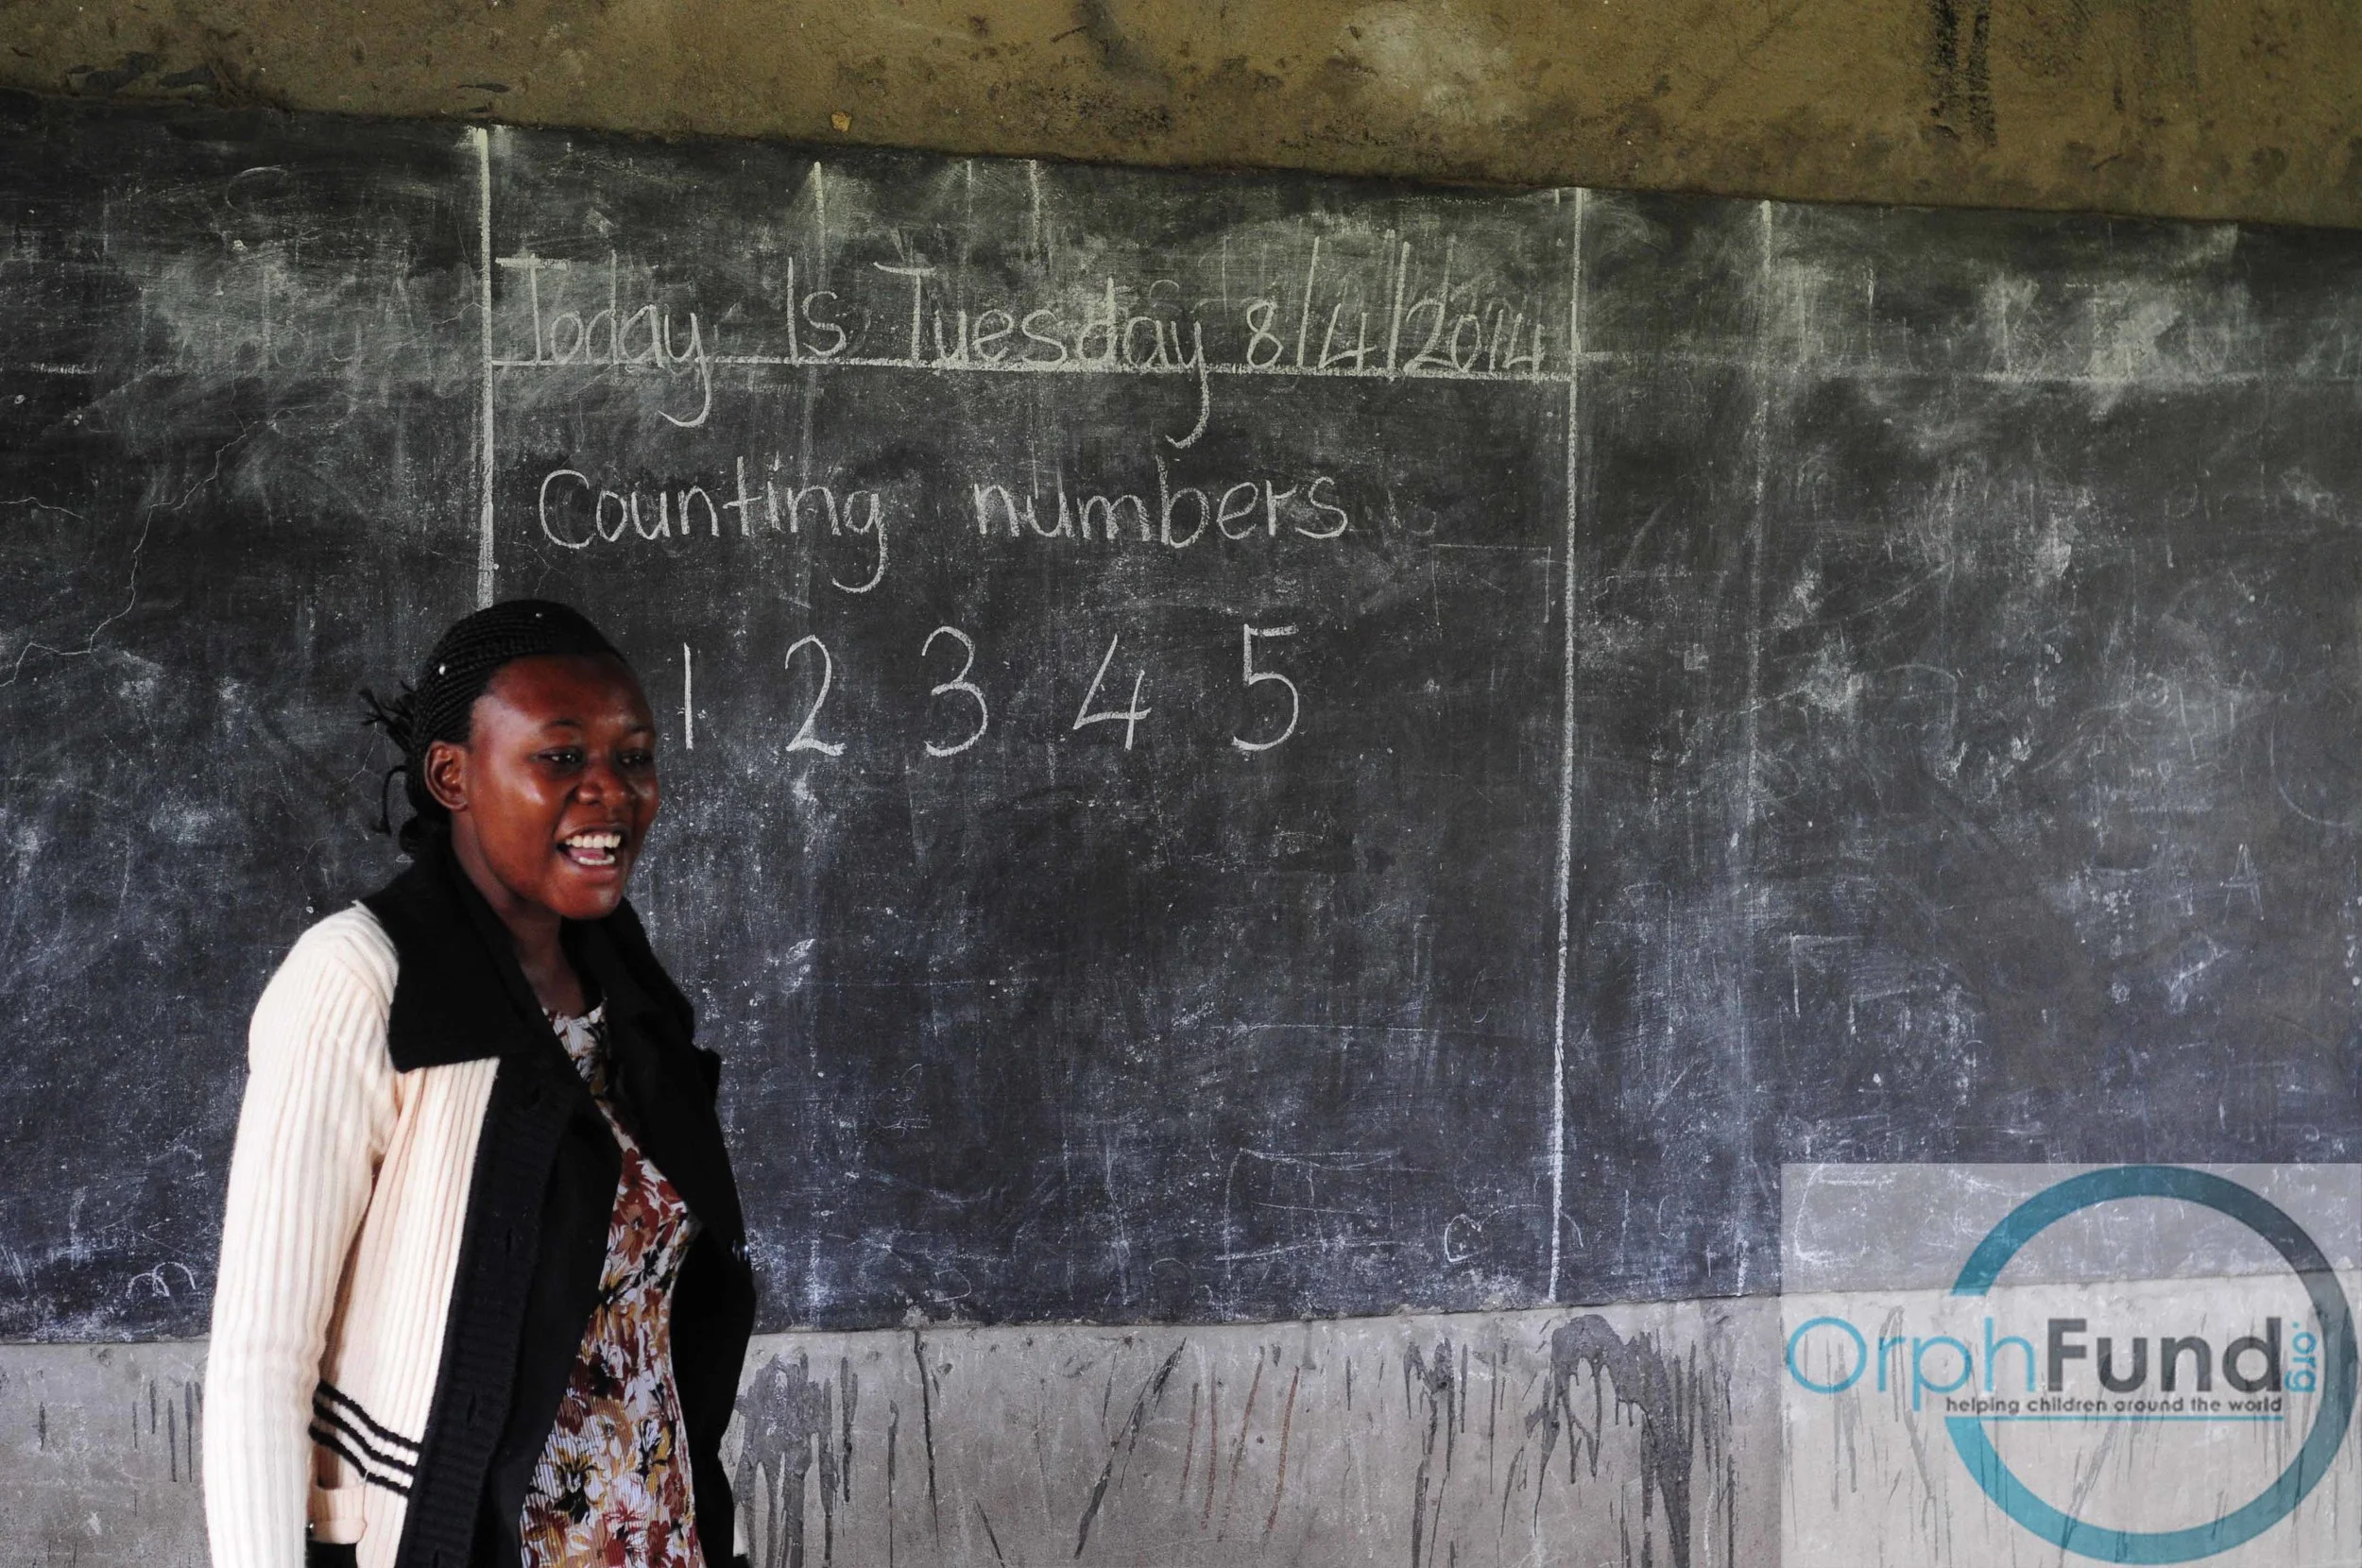 Today Is Tuesday 8/4/2014
Counting numbers
1 2 3 4 5
OrphFund.org
helping children around the world